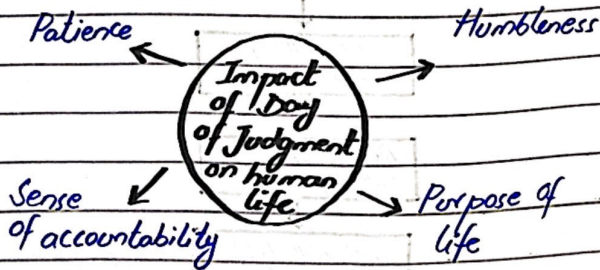 Patience
Humbleness
Impact
of Day
of Judgment
on human
life
Sense
of accountability
Purpose of
life